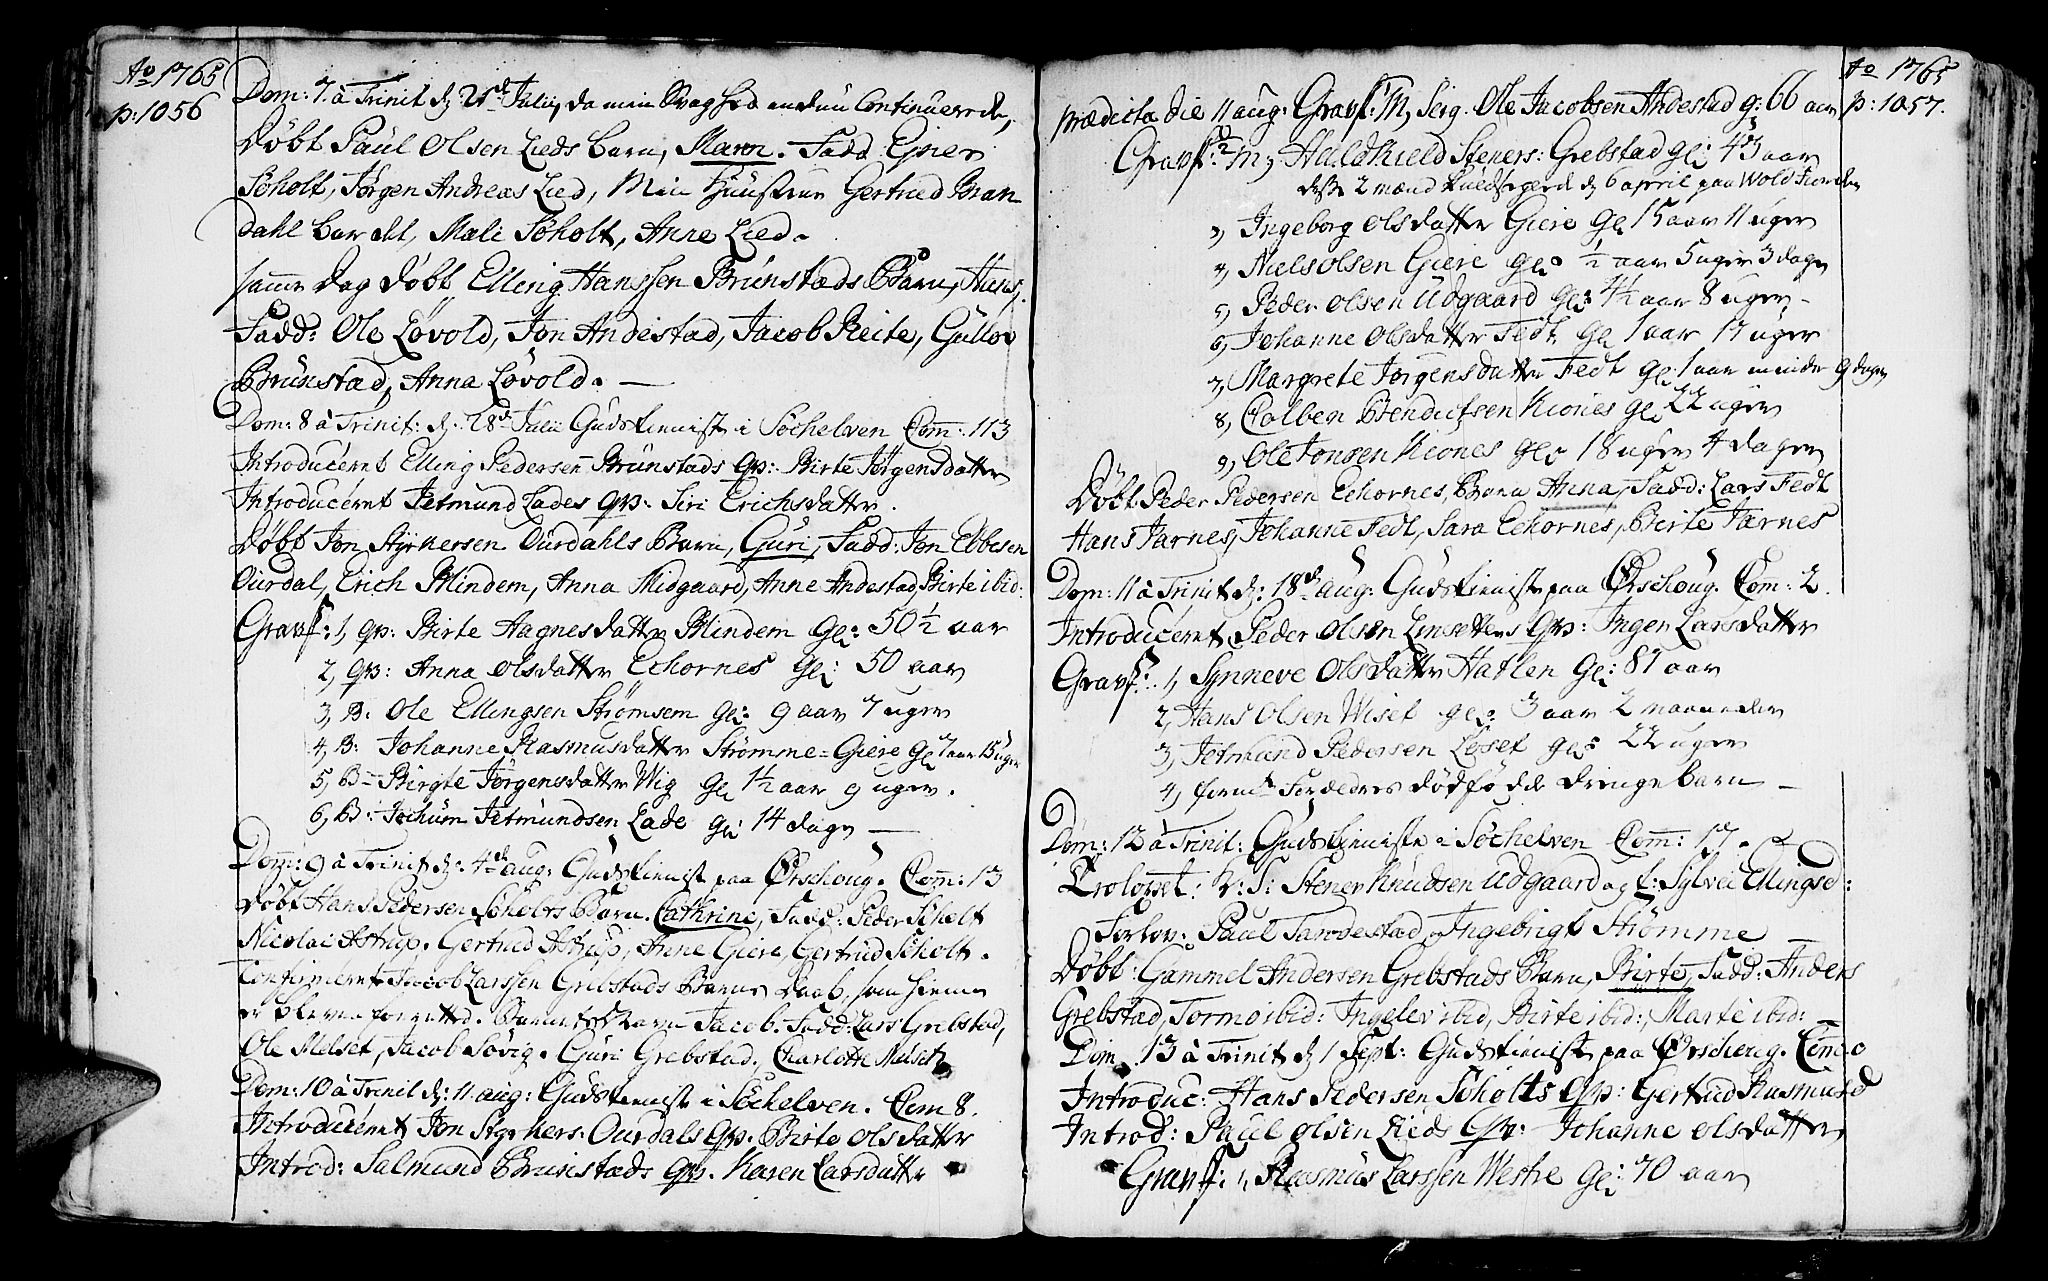 Ao 1765
p: 1056
Dom: 7 à Trinit d: 21de Julii, da min Svaghed endnu Continuerede,
Døbt Paul Olsen Lieds barn, Maren. Fadd: Ejner
Søholt, Jørgen Andreas Lied, Min Huustrue Gertrud Bran
dahl bar det, Mali Søholt, Anne Lied.
samme dag døbt Elling Hanssen Brunstads Barn, Hans.
Fadd: Ole Løvold, Jon Andestad, Jacob Reite, Gullov
Brunstad, Anna Løvold. —
Dom: 8 à Trinit: d: 28de Julii Gudstieniste i Søchelven Com: 113
Introduceret Elling Pedersen Brunstads qv: Birte Jørgensdatter
Introduceret Jetmund Lades qv: Siri Erichsdatter.
Døbt Jon Styrkersen Ourdahls Barn, Guri, Fadd: Jon Ebbesen
Ourdal, Erich Blindem, Anna Midgaard, Anne Andestad, Birte ibid:
Gravf: 1, qv: Birte Hagnesdatter Blindem gl: 50 1/2 aar
2, qv: Anna Olsdatter Echornes gl: 50 aar
3, B: Ole Ellingsen Strømsem gl: 9 aar 7 uger
4, B: Johanne Rasmusdatter Strømme=Giere gl 7 aar 15 uger
5, B: Birgte Jørgensdatter Wig gl 1/2 aar 9 uger.
6, B: Jochum Jetmundsen Lade gl: 14 dage —
Dom: 9 à Trinit d: 4de aug: Gudstieniste paa Ørschoug. Com: 13
Døbt Hans Pedersen Søholts Barn. Cathrine, Fadd: Peder Scholt
Nicolai Astrup. Gertrud Astrup, Anne Giere, Gertrud Scholt.
Confirmeret Jacob Larssen Grebstads Barns Daab, som hiemme
er bleven forrettet. Barnet Jacob. Fadd: Lars Grebstad,
Ole Melset, Jacob Søvig. Guri Grebstad. Charlotte Melset
Dom: 10 à Trinit d: 11 aug: Gudstieniste i Søchelven. Com 8.
Introduceret Jon Styrkers: Ourdals qv. Birte Olsdatter
Introd: Salmund Brunstads qv. Karen Larsdatter
Ao 1765
p: 1057.
prædicta die 11 aug: Gravf: M, Seig. Ole Jacobsen Andestad g: 66 aar
Gravf: 2 M, Haldkield Steners: Grebstad gl: 43 aar
disse 2 mænd d 6 april paa Wold Fiorden
3, Ingeborg Olsdatter Giere gl 15 aar 11 uger
4, Niels Olsen Giere gl: 1/2 aar 5 uger 3 dage
5, Peder Olsen Udgaard gl: 4 1/2 aar 8 uger —
6, Johanne Olsdatter Fedt gl 1 aar 17 uger
7, Margrete Jørgensdatter Fedt gl: 1 aar minder 9 dage
8, Colben Bendictsen Kiones gl 22 uger
9, Ole Jonsen Kiones gl: 18 uger 4 dager
Døbt Peder Pedersen Echornes, Barn Anna, Fadd: Lars Fedt
Hans Jarnes, Johanne Fedt, Sara Echornes, Birte Jarnes
Dom: 11 à Trinit d: 18de aug: Gudstieniste paa Ørschoug. Com: 2.
Introduceret Peder Olsen Emsettens qv: Inger Larsdatter
Gravf: 1, Synneve Olsdatter Hatlen gl: 81 aar
2, Hans Olsen Wiset gl: 3 aar 2 maaneder
3, Jetmund Pedersen Løset gl: 22 uger
4, dødfødde drenge barn —
Dom: 12 à Trinit: Gudstieniste i Søchelven Com: 17.
Trolovet: U: S: Stener Knudsen Udgaard og P: Sylvei Ellingsd:
Forlov: Paul Tandestad, Ingebrigt Strømme
Døbt: Gammel Andersen Grebstads Barn, Birte, Fadd: Anders
Grebstad, Tormo ibid: Ingelev ibid, Birte ibid:, Marte ibid: —
Dom. 13 à Trinit d 1 Sept: Gudstieniste paa Ørschoug. Com: 0
Introduc: Hans Pedersen Søholts qv: Gertrud Rasmusd
Introd: Paul Olsen Lieds qv: Johanne Olsdatter,
Gravf: 1, Rasmus Larssen Westre gl: 70 aar